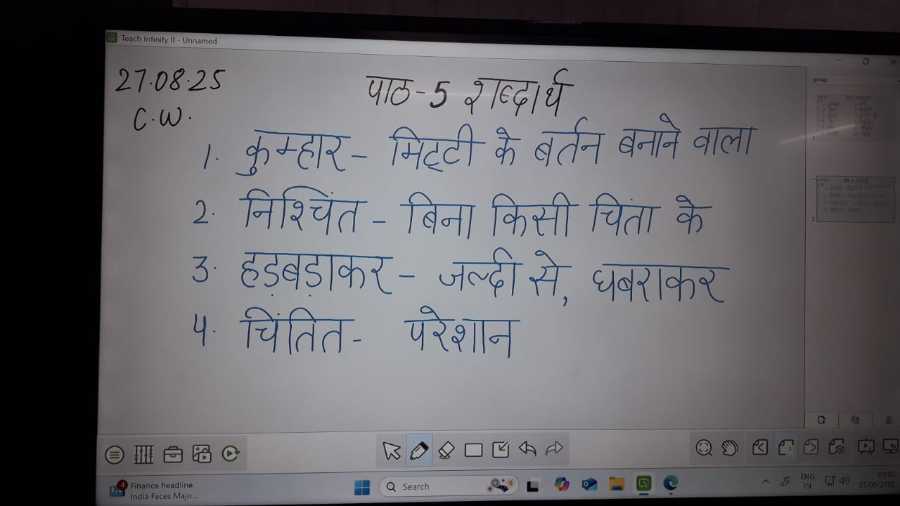 Teach Infinity II - Unnamed
27.08.25
पाठ-5 शब्दार्थ
C.W.
1. कुम्हार - मिट्टी के बर्तन बनाने वाला
2. निश्चिंत - बिना किसी चिंता के
3. हड़बड़ाकर - जल्दी से, घबराकर
4. चिंतित - परेशान
Finance headline
India Faces Majo...
Search
ENG
IN